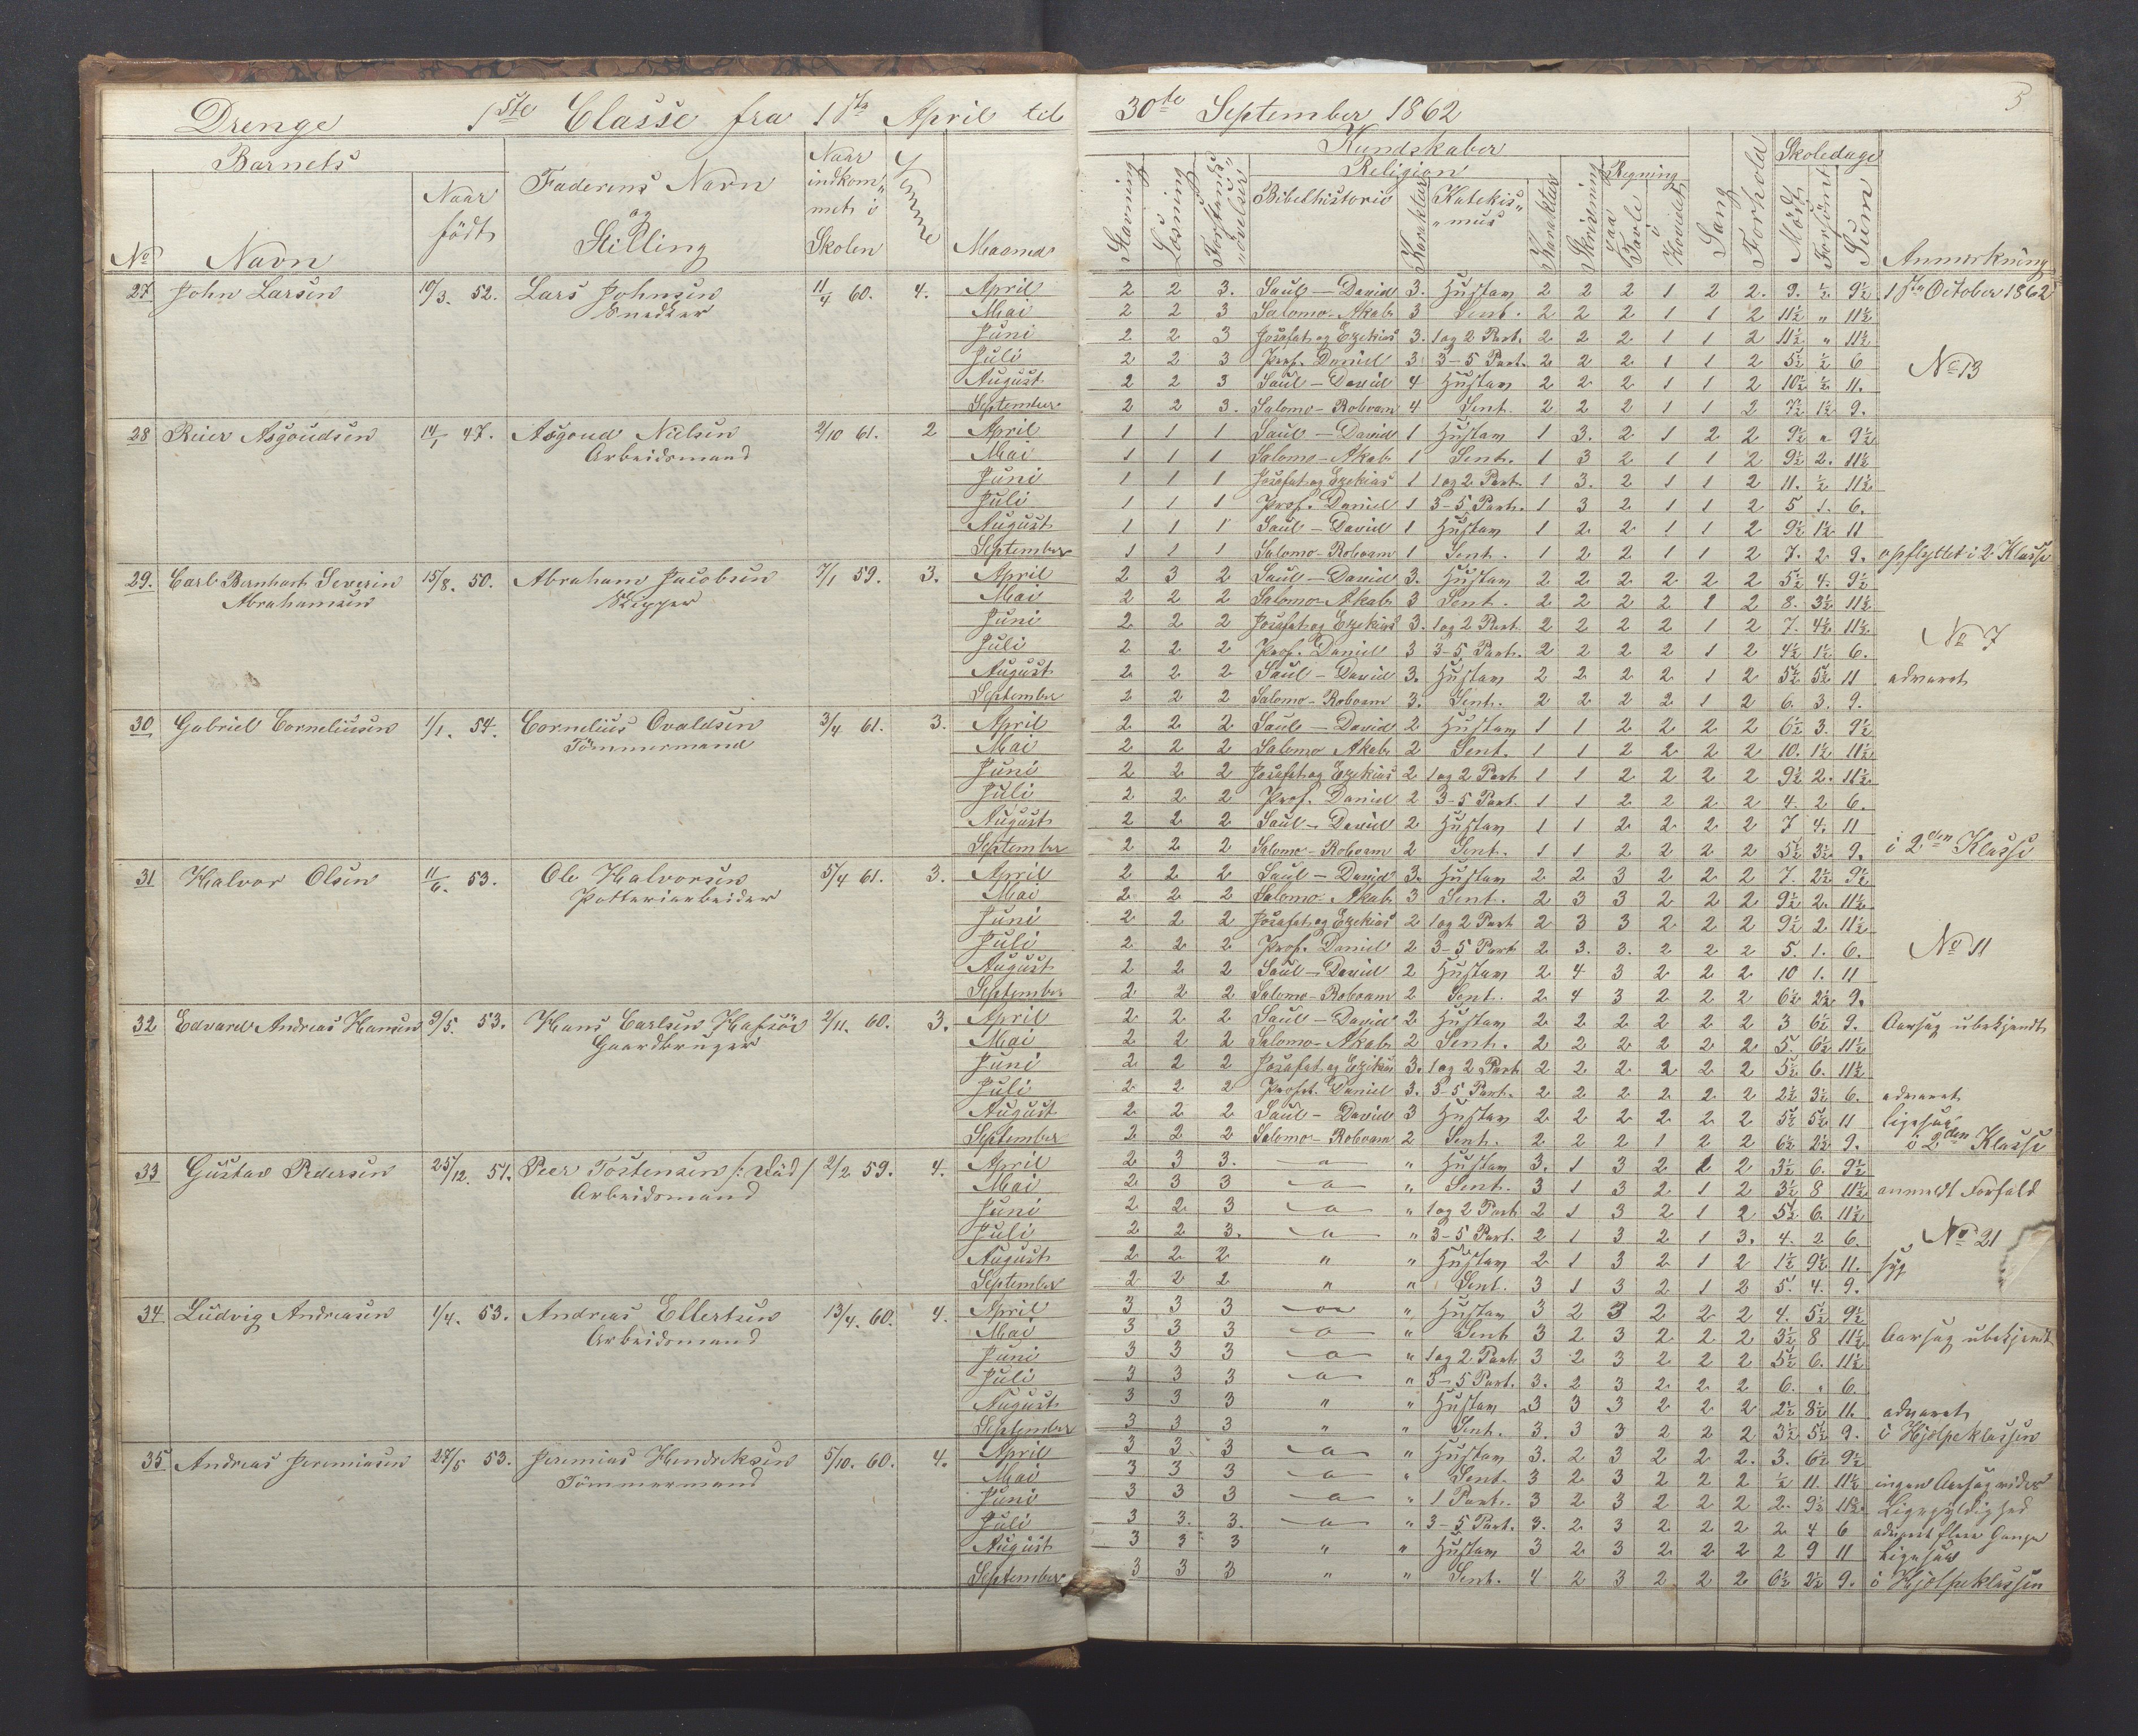 Drenge 1ste Classe fra 1ste April til 30te September 1862 3
Barnets Faderens Navn og Stilling Naar indkommet i Skolen Evne Maaned Kundskaber Skoledage Anmærkning
No Navn Naar födt Stavning Læsning Forstandsøvelser Religion Bibelhistorie Karakter Katekismus Karakter Skrivning Regning paa Tavle i Hovedet Sang Forhold Mödt Forsömt Sum
27 John Larsen 10/3. 52. Lars Johnsen 11/4 60. 4. April 2 2 3. Saul – David 3. Hustav 2 2 2 1 2 2. 9. ½ 9½ 1ste October 1862
Snedker Mai 2 2 3 Salomo – Akab 3 Sent. 2 2 2 1 1 2 11½ " 11½
Juni 2 2 3 Josafat og Ezekias 3. 1 og 2 Part. 2 2 2 1 1 2 11½ " 11½
Juli 2 2 3 Prof. Daniel 3 3–5 Part. 2 2 2 1 1 2 5½ ½ 6 No 13
August 2 2 3 Saul – David 4 Hustav 2 2 2 1 1 2 10½ ½ 11.
September 2 2 3. Salomo – Roboam 4 Sent. 2 2 2 1 1 2 7½ 1½ 9.
28 Reier Asgoudsen 14/1 47. Asgoud Nielsen 2/10 61. 2 April 1 1 1 Saul – David 1 Hustav 1 3. 2 1 2 2 9½ " 9½
Arbeidsmand Mai 1 1 1 Salomo – Akab 1 Sent. 1 3 2 1 1 2 9½ 2. 11½
Juni 1 1 1 Josafat og Ezekias 1 1 og 2 Part. 1 3. 2 1 1 2 11. ½ 11½
Juli 1 1 1 Prof. Daniel 1 3–5 Part. 1 3 2 1 1 2 5 1. 6.
August 1 1 1 Saul – David 1 Hustav 1 2 2 1 1 2 9½ 1½ 11
September 1 1 1 Salomo – Roboam 1 Sent. 1 2 2 1 1 2 7. 2. 9. opflyttet i 2. Klasse
29. Carl Bernhart Severin 15/8. 50. Abraham Jacobsen 7/1 59. 3. April 2 3 2 Saul – David 3. Hustav 2 2 2 2 2 2 5½ 4. 9½
Abrahamsen Skipper Mai 2 2 2 Salomo – Akab 3 Sent. 2 2 2 2 1 2 8. 3½ 11½
Juni 2 2 2 Josafat og Ezekias 3. 1 og 2 Part 2 2 2 2 1 2 7. 4½ 11½
Juli 2 2 2 Prof. Daniel 3 3–5 Part. 2 2 2 2 1 2 4½ 1½ 6. No 7
August 2 2 2 Saul – David 3. Hustav 2 2 2 2 1 2 5½ 5½ 11 advaret
September 2 2 2 Salomo – Roboam 3. Sent. 2 2 2 2 1 2 6. 3. 9.
30 Gabriel Corneliusen 1/1. 54. Cornelius Ovaldsen 3/4 61. 3. April 2 2 2 Saul – David 2 Hustav 1 1 2 2 2 2 6½ 3. 9½
Tömmermand Mai 2 2 2 Salomo Akab 2 Sent. 1 1 2 2 2 2 10. 1½ 11½
Juni 2 2 2 Josafat og Ezekias 2 1 og 2 Part 1 1 2 2 2 2 9½ 2. 11½
Juli 2 2 2 Prof. Daniel 2 3–5 Part. 1 1 2 2 2 2 4. 2 6.
August 2 2 2 Saul – David 2 Hustav 1 1 2 2 2 2 7 4. 11
September 2 2 2 Salomo – Roboam 2 Sent. 1 1 2 2 2 2 5½ 3½ 9. i 2den Klasse
31 Halvor Olsen 11/6. 53. Ole Halvorsen 5/4 61. 3. April 2 2 2 Saul – David 3. Hustav 2 2 3 2 2 2 7. 2½ 9½
Potteriarbeider Mai 2 2 2 Salomo – Akab 3 Sent. 2 3 3 2 2 2 9½ 2. 11½
Juni 2 2 2 Josafat og Ezekias 2 1 og 2 Part 2 3 3 2 2 2 9½ 2 11½
Juli 2 2 2 Prof. Daniel 2 3–5 Part 2 3. 3. 2 2 2 5. 1. 6. No 11
August 2 2 2 Saul – David 2 Hustav 2 4 3 2 2 2 10 1. 11
September 2 2 2 Salomo – Roboam 2 Sent. 2 4 3 2 2 2 6½ 2½ 9.
32 Edvard Andreas Hansen 9/5. 53. Hans Carlsen Hafsöe 2/11. 60. 3. April 2 2 2 Saul – David 2 Hustav 2 2 2 2 2 2 3 6½ 9. Aarsag ubekjendt
Gaardbruger Mai 2 2 2 Salomo – Akab 2 Sent. 2 2 2 2 2 2 5. 6½ 11½
Juni 2 2 2 Josafat og Ezekias 3. 1 og 2 Part 2 2 2 2 2 2 5½ 6. 11½
Juli 2 2 2 Profet. Daniel 3. 3–5 Part. 2 2 2 2 2 2 2½ 3½ 6. advaret
August 2 2 2 Saul – David 3 Hustav 2 2 2 2 2 2 5½ 5½ 11 ligesaa
September 2 2 2 Salomo – Roboam 2 Sent. 2 2 2 1 2 2 6½ 2½ 9. i 2den Klasse
33 Gustav Pedersen 25/12. 51. Peer Tostensen /: död / 2/2 59. 4. April 2 3 3. a " Hustav 3. 1 3 2 1 2 3½ 6. 9½
Arbeidsmand Mai 2 3 3 a " Sent. 3 1 3 2 1 2 3½ 8 11½ anmeldt Forfald
Juni 2 2 3 a " 1 og 2 Part 2 1 3 2 1 2 5½ 6. 11½
Juli 2 2 3. a " 3–5 Part. 2 1 3 2 1 3. 4. 2 6. No 21
August 2 2 2 " " Hustav 2 1 3 2 1 2 1½ 9½ 11. syg
September 2 2 2 " " Sent. 3 1 3 2 1 2 5. 4. 9.
34 Ludvig Andreasen 1/4. 53. Andreas Ellertsen 13/4. 60. 4. April 3 3 3 a " Hustav 3 2 3 2 2 2 4. 5½ 9½
Arbeidsmand Mai 3 3 3 a " Sent 3 2 3 2 2 2 3½ 8 11½ Aarsag ubekjendt
Juni 3 3 3 a " 1 og 2 Part 3 2 3 2 2 2 5½ 6. 11½
Juli 3 3 3 a " 3–5 Part. 3. 2 3 2 2 2 6. " 6.
August 3 3 3 " " Hustav 3 3 3 2 2 2 2½ 8½ 11. advaret
September 3 3 3 " " Sent. 3. 3 3 2 2 2 3½ 5½ 9. i Hjelpeklassen
35 Andreas Jeremiasen 27/5 53. Jeremias Hendriksen 5/10. 60. 4. April 3 3 3 a " Hustav 3. 2 3 2 2 2. 3. 6½ 9½
Tömmermand Mai 3 3 3 a " Sent. 3 2 3 2 2 2 ½ 11. 11½ ingen Aarsag uden
Juni 3 3 3 a " 1 Part. 3 2 3 2 2 2 2. 9½ 11½ Ligegyldighed
Juli 3 3. 3. a " 3–5 Part. 3. 2 3 2 2 2 2 4 6 advaret flere Gange
August 3 3 3 " " Hustav 3 2 3 2 2 2 2 9 11 ligesaa
September 3 3 3 " " Sent. 4 2 3 2 2 2 6½ 2½ 9. i Hjelpeklassen